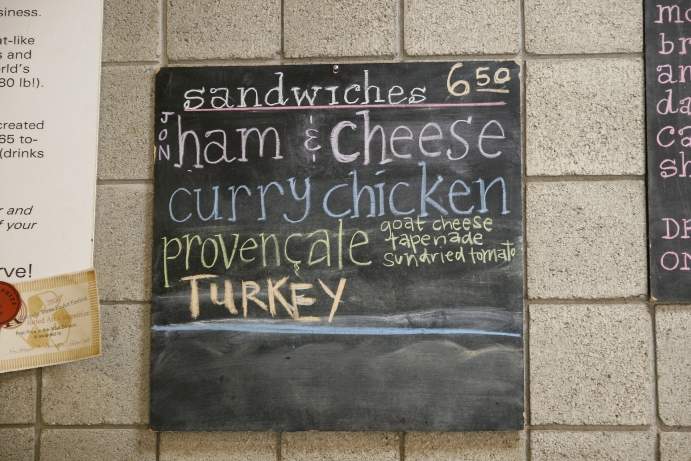 siness.
at-like
s and
rld's
80 lb!).
created
65 to-
(drinks
r and
f your
rve!
sandwiches 6 50
JON ham & cheese
curry chicken
provençale goat cheese
tapenade
sundried tomato
TURKEY
mo
br
an
da
ca
sh
DR
ON